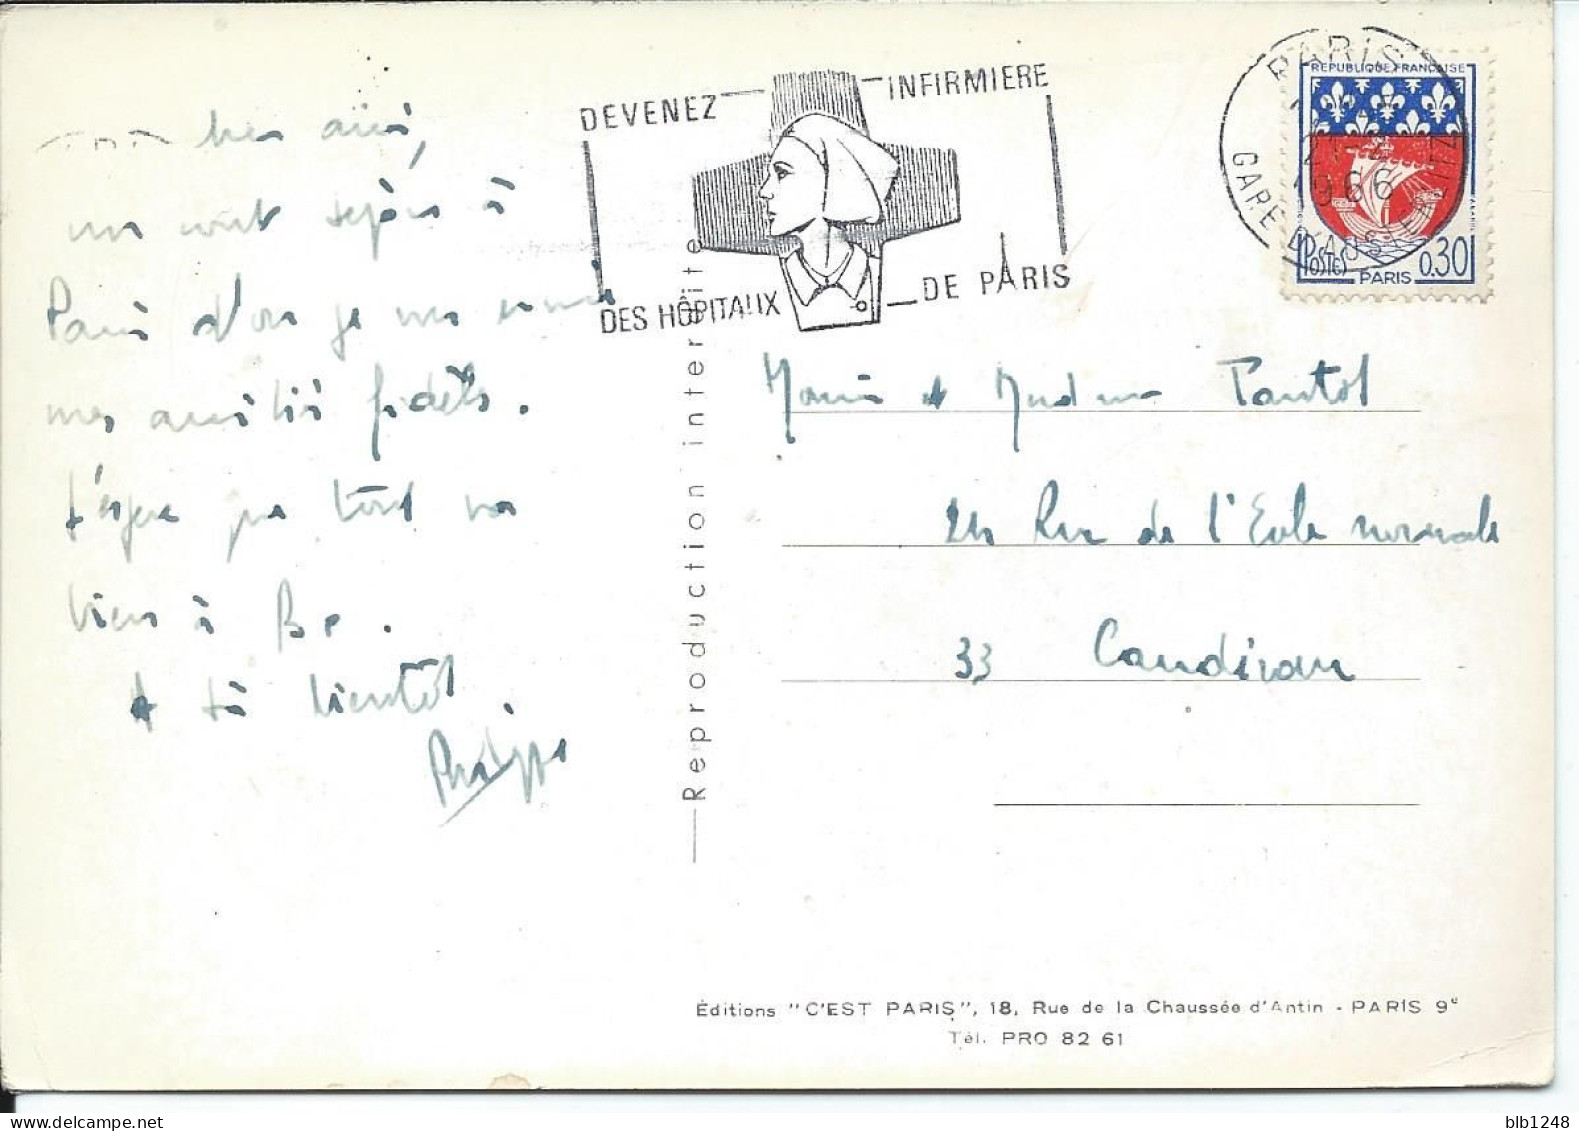 DEVENEZ INFIRMIERE
DES HÔPITAUX DE PARIS
PARIS
21-2
1966
GARE D'AUSTERLITZ
REPUBLIQUE FRANÇAISE
POSTES PARIS 0.30
amis,
un court séjour à
Paris d'où je vous envoie
mes amitiés fidèles.
J'espère que tout va
bien à
à bientôt
Philippe
Reproduction interdite
Monsieur et Madame Pantot
24 Rue de l'Ecole normale
33 Caudéran
Éditions "C'EST PARIS", 18, Rue de la Chaussée d'Antin - PARIS 9e
Tél. PRO 82 61
blb1248